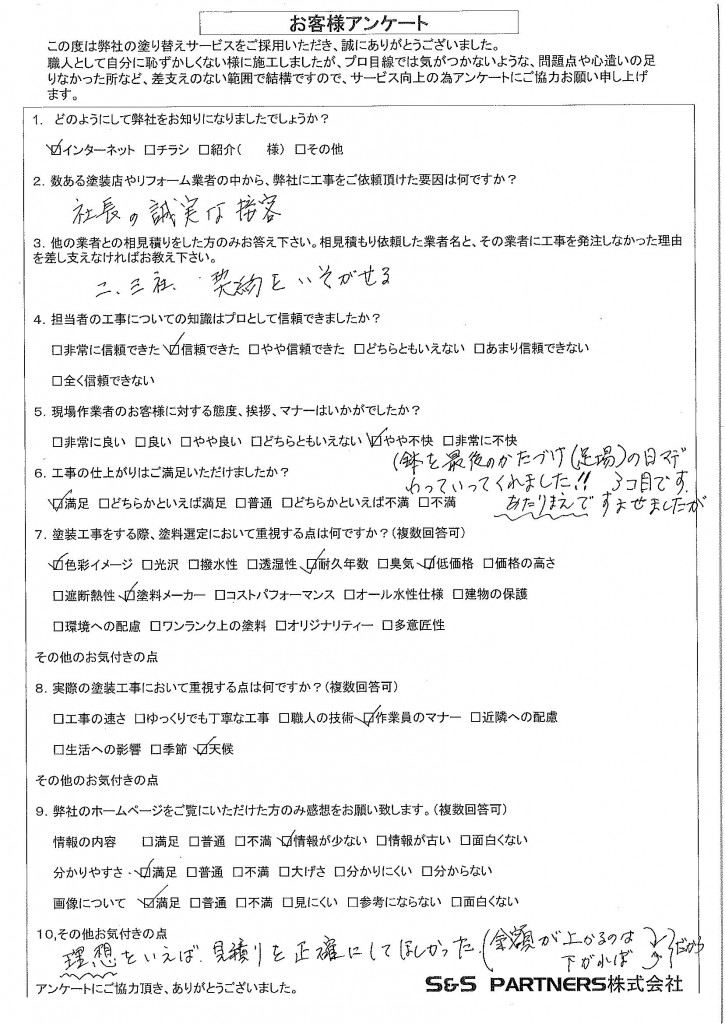 お客様アンケート
この度は弊社の塗り替えサービスをご採用いただき、誠にありがとうございました。
職人として自分に恥ずかしくない様に施工しましたが、プロ目線では気がつかないような、問題点や心遣いの足
りなかった所など、差支えのない範囲で結構ですので、サービス向上の為アンケートにご協力お願い申し上げ
ます。
1. どのようにして弊社をお知りになりましたでしょうか？
☑インターネット □チラシ □紹介（　様）□その他
2. 数ある塗装店やリフォーム業者の中から、弊社に工事をご依頼頂けた要因は何ですか？
社長の誠実な接客
3. 他の業者との相見積りをした方のみお答え下さい。相見積もり依頼した業者名と、その業者に工事を発注しなかった理由
を差し支えなければお教え下さい。
二、三社、契約をいそがせる
4. 担当者の工事についての知識はプロとして信頼できましたか？
□非常に信頼できた ☑信頼できた □やや信頼できた □どちらともいえない □あまり信頼できない
□全く信頼できない
5. 現場作業者のお客様に対する態度、挨拶、マナーはいかがでしたか？
□非常に良い □良い □やや良い □どちらともいえない ☑やや不快 □非常に不快
(鉢を最後のかたづけ(足場)の日マデ
わっていってくれました!! 3コ目です.
あたりまえですませましたが
6. 工事の仕上がりはご満足いただけましたか？
☑満足 □どちらかといえば満足 □普通 □どちらかといえば不満 □不満
7. 塗装工事をする際、塗料選定において重視する点は何ですか？（複数回答可）
☑色彩イメージ □光沢 □撥水性 □透湿性 ☑耐久年数 □臭気 ☑低価格 □価格の高さ
□遮断熱性 ☑塗料メーカー □コストパフォーマンス □オール水性仕様 □建物の保護
□環境への配慮 □ワンランク上の塗料 □オリジナリティー □多意匠性
その他のお気付きの点
8. 実際の塗装工事において重視する点は何ですか？（複数回答可）
□工事の速さ □ゆっくりでも丁寧な工事 □職人の技術 ☑作業員のマナー □近隣への配慮
□生活への影響 □季節 ☑天候
その他のお気付きの点
9. 弊社のホームページをご覧にいただけた方のみ感想をお願い致します。（複数回答可）
情報の内容 □満足 □普通 □不満 ☑情報が少ない □情報が古い □面白くない
分かりやすさ ☑満足 □普通 □不満 □大げさ □分かりにくい □分からない
画像について ☑満足 □普通 □不満 □見にくい □参考にならない □面白くない
10,その他お気付きの点
理想をいえば、見積りを正確にしてほしかった.(金額が上がるのは
下がれば
だから
アンケートにご協力頂き、ありがとうございました。
S&S PARTNERS株式会社